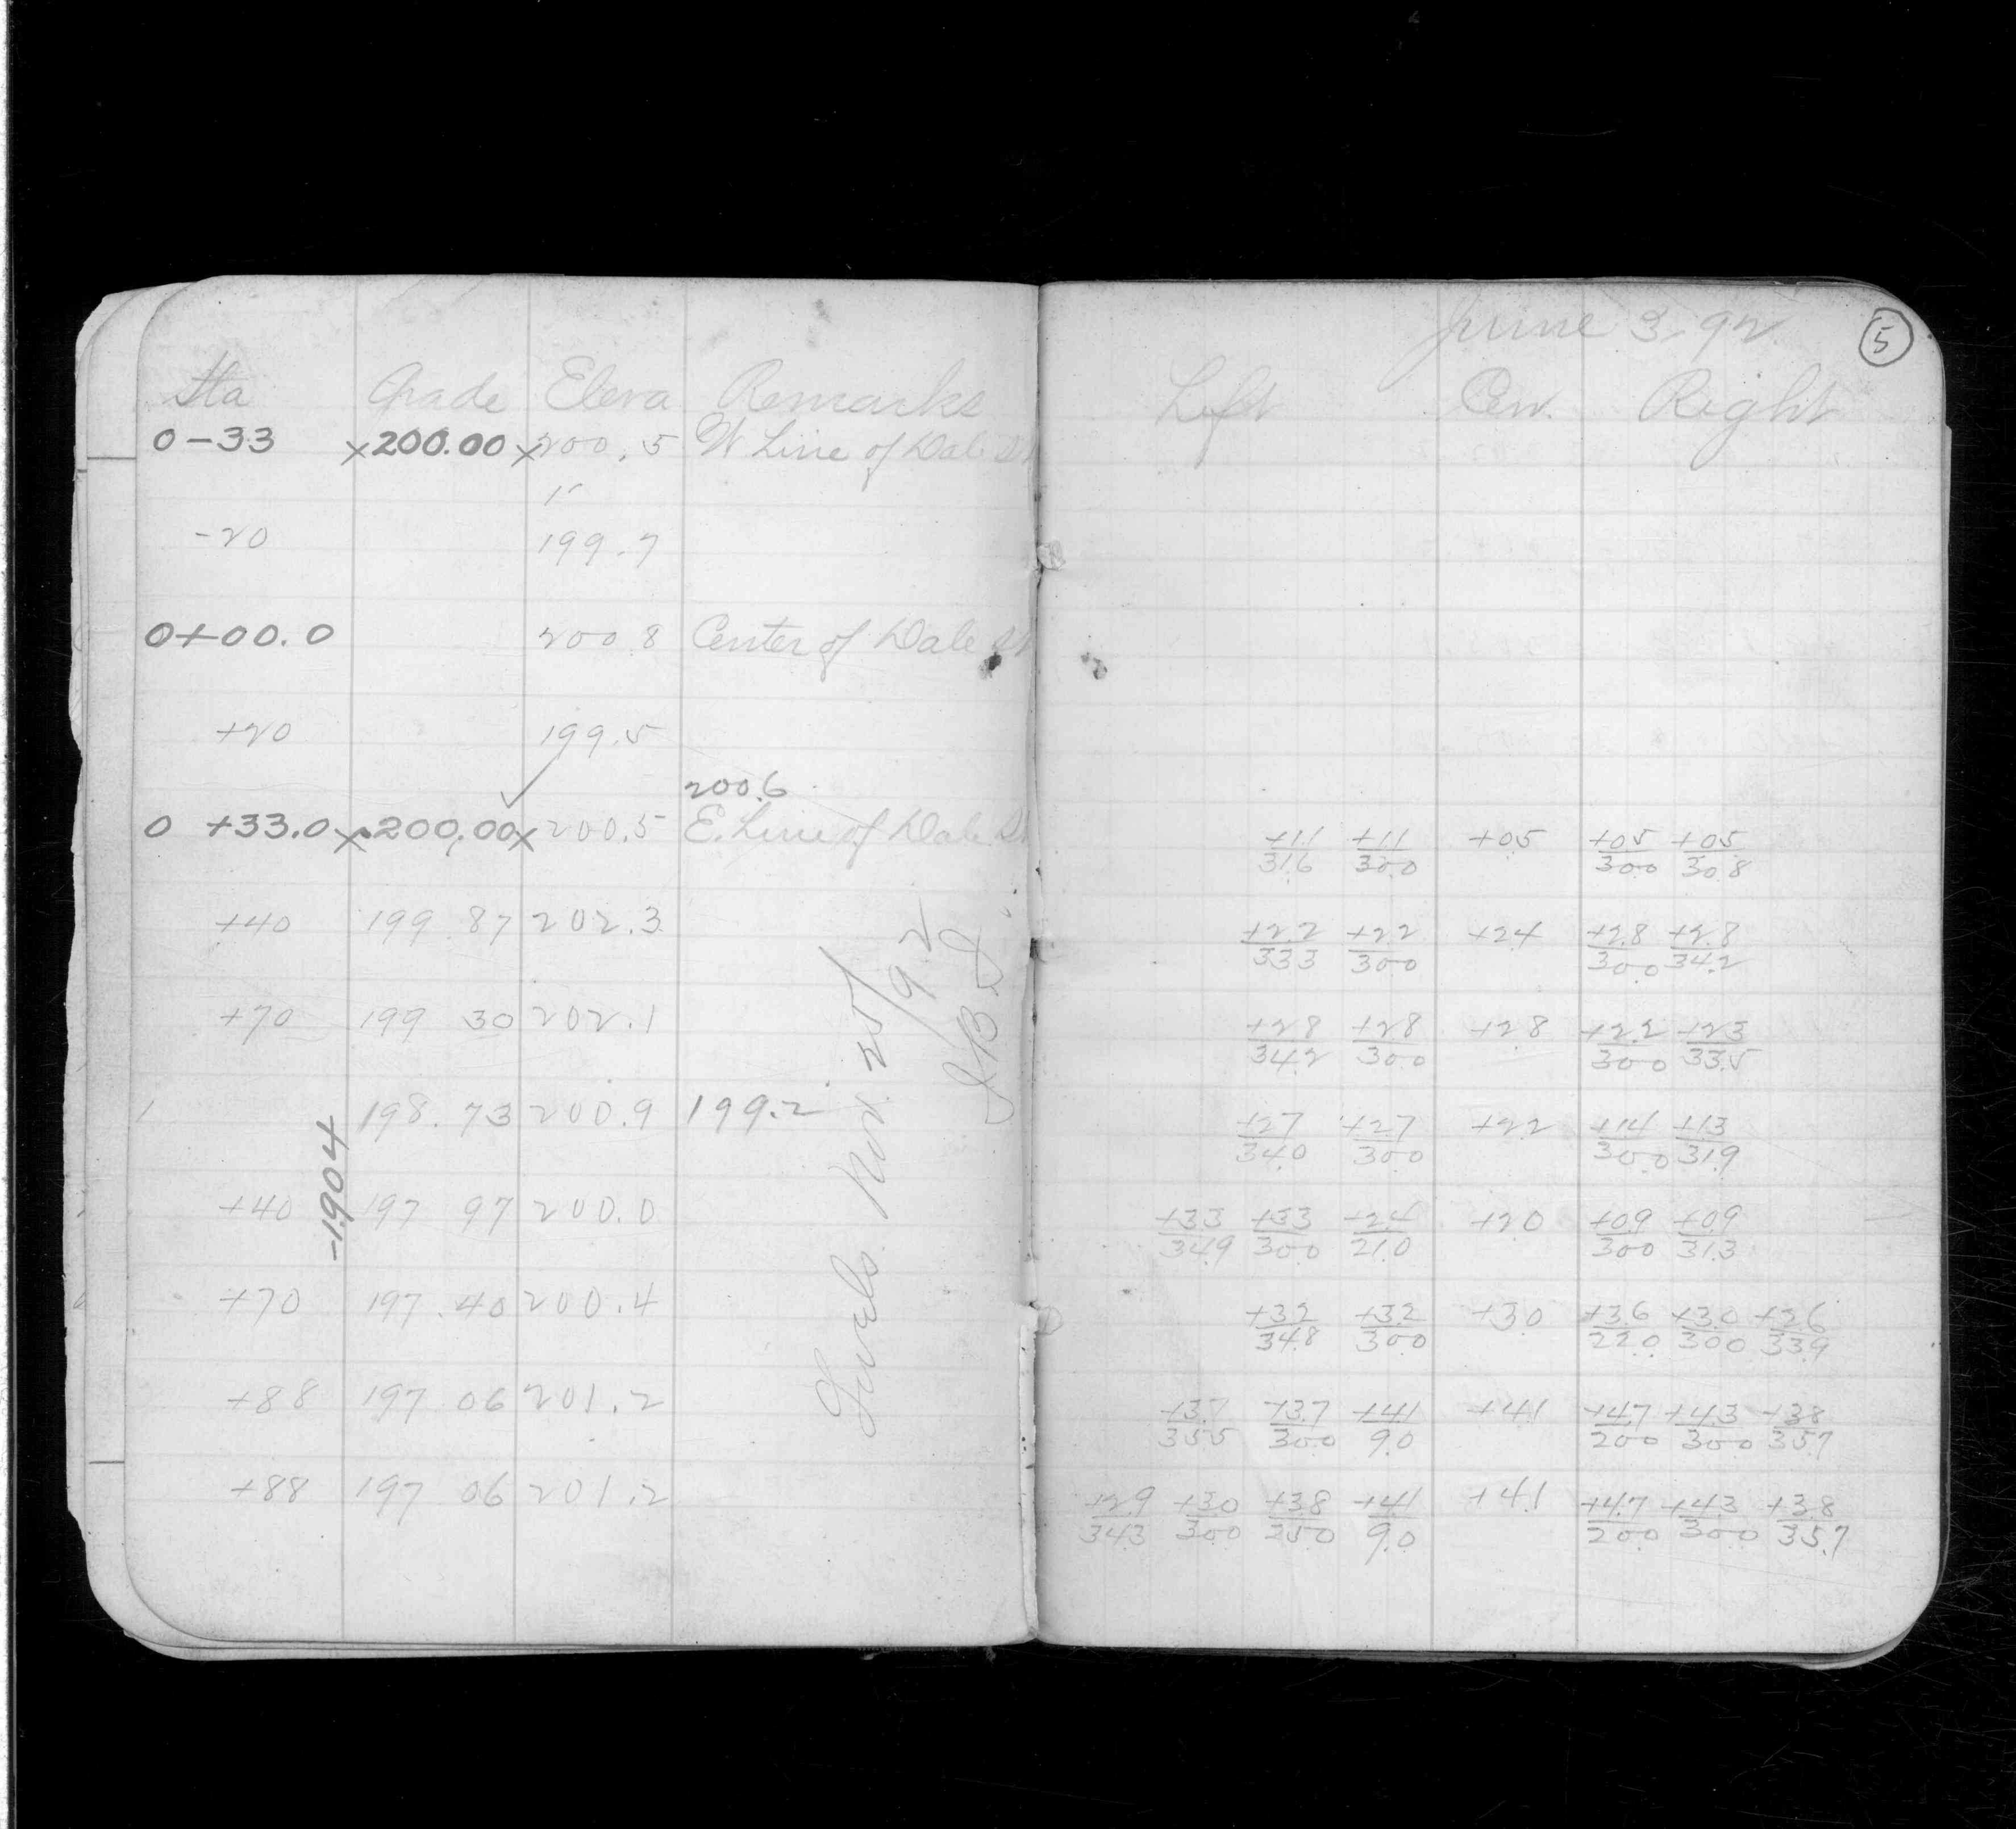 Sta Grade Eleva Remarks
0-33 x200.00 x200.5 W Line of Dale St
15
-20 199.7
0+00.0 200.8 Center of Dale St
+20 199.5
✓ 200.6
0 +33.0 x 200.00 x 200.5 E. Line of Dale St
+40 199.87 202.3
+70 199 30 202.1
1 198.73 200.9 199.2
+40 197 97 200.0
+70 197.40 200.4
+88 197 06 201.2
+88 197 06 201.2
-1.904
Levels Nov. 25/92
June 3-92
5
Left Cen. Right
+1.1/31.6 +1.1/30.0 +0.5 +0.5/30.0 +0.5/30.8
+2.2/33.3 +2.2/30.0 +2.4 +2.8/30.0 +2.8/34.2
+2.8/34.2 +2.8/30.0 +2.8 +2.2/30.0 +2.3/33.5
+2.7/34.0 +2.7/30.0 +2.2 +1.4/30.0 +1.3/31.9
+3.3/34.9 +3.3/30.0 +2.4/21.0 +2.0 +0.9/30.0 +0.9/31.3
+3.2/34.8 +3.2/30.0 +3.0 +3.6/22.0 +3.0/30.0 +2.6/33.9
+3.7/35.5 +3.7/30.0 +4.1/9.0 +4.1 +4.7/20.0 +4.3/30.0 +3.8/35.7
+2.9/34.3 +3.0/30.0 +3.8/25.0 +4.1/9.0 +4.1 +4.7/20.0 +4.3/30.0 +3.8/35.7